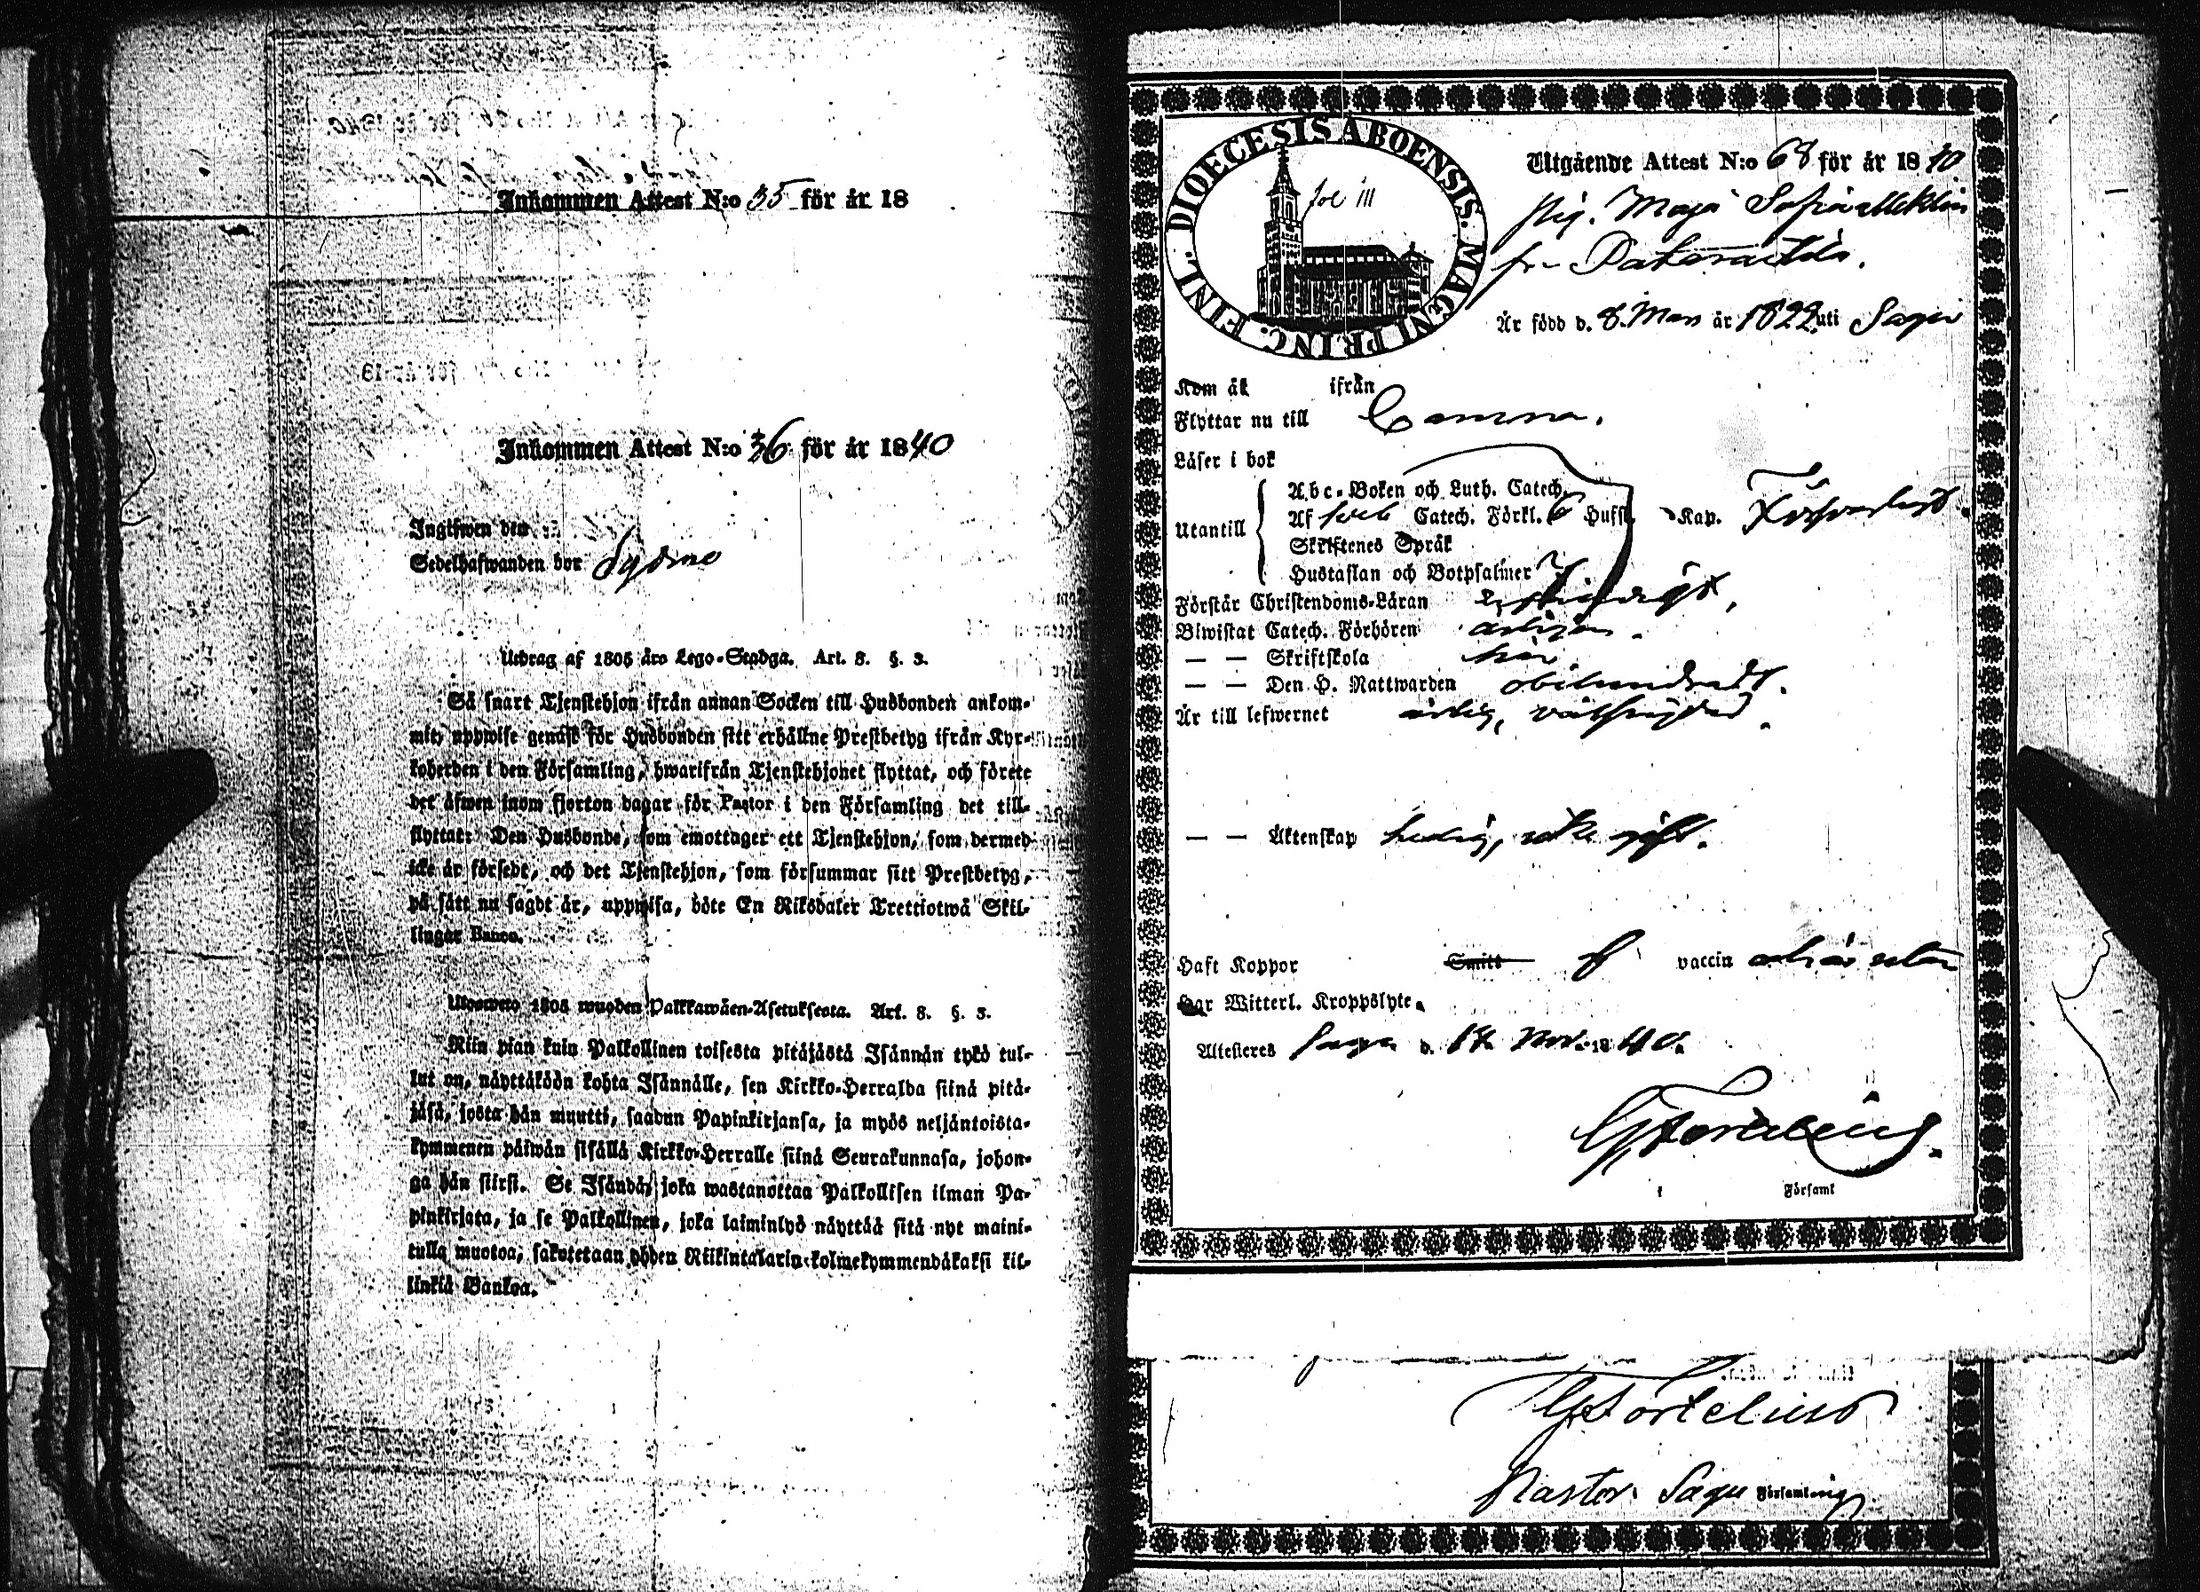 Inkommen Attest N:o 35 för år 18
Inkommen Attest N:o 36 för år 1840
Ingifwen den
Sedelhafwanden bor
Utdrag af 1805 års Lego-Stadga. Art. 8. §. 3.
Så snart Tjenstehjon ifrån annan Socken till Husbonden ankom-
mit, uppwise genast för Husbonden sitt erhållne Prestbetyg ifrån Kyr-
koherden i den Församling, hwarifrån Tjenstehjonet flyttat, och förete
det äfwen inom fjorton dagar för Pastor i den Församling det till-
flyttat: Den Husbonde, som emottager ett Tjenstehjon, som dermed
icke är försedt, och det Tjenstehjon, som försummar sitt Prestbetyg,
på sätt nu sagdt är, uppwisa, böte En Riksdaler Trettiotwå Skil-
lingar Banco.
Ulosweto 1805 wuoden Palkkawäen-Asetuksesta. Art. 8. §. 3.
Niin pian kuin Palkollinen toisesta pitäjästä Isännän tykö tul-
lut on, näyttäköön kohta Isännälle, sen Kirkko-Herralda siinä pitä-
jäsä, josta hän muutti, saadun Papinkirjansa, ja myös neljäntoista-
kymmenen päiwän sisällä Kirkko-Herralle siinä Seurakunnasa, johon-
ga hän siirsi. Se Isändä, joka wastanottaa Palkollisen ilman Pa-
pinkirjata, ja se Palkollinen, joka laiminlyö näyttää sitä nyt maini-
tulla muotoa, sakotetaan yhden Riikintalarin kolmekymmendäkaksi kil-
linkiä Bankoa.
DIOECESIS ABOENSIS. MAGNI PRINC. FINL.
Utgående Attest N:o 68 för år 1840.
Pig. Maja Sofia
fr.
Är född d. 8. Mars år 1822 uti Sagu
Kom åt ifrån
Flyttar nu till Cammo.
Läser i bok
Abc-Boken och Luth. Catech.
Utantill Af Catech. Förkl. 6 Hufst. Kap. Försvarligt.
Skriftenes Språk
Hustaflan och Botpsalmer 7
Förstår Christendoms-Läran
Biwistat Catech. Förhören årligen.
— — Skriftskola här.
— — Den H. Nattwarden obehindradt.
Är till lefwernet ärlig, välfrejdad.
— — Äktenskap ledig, icke gift.
Haft Koppor Smitt vaccin
Har Witterl. Kroppslyte.
Attesteres Sagu d. 14 Nov. 1840.
GFortelius.
i Församl
GFortelius
Pastor. Sagu Församling